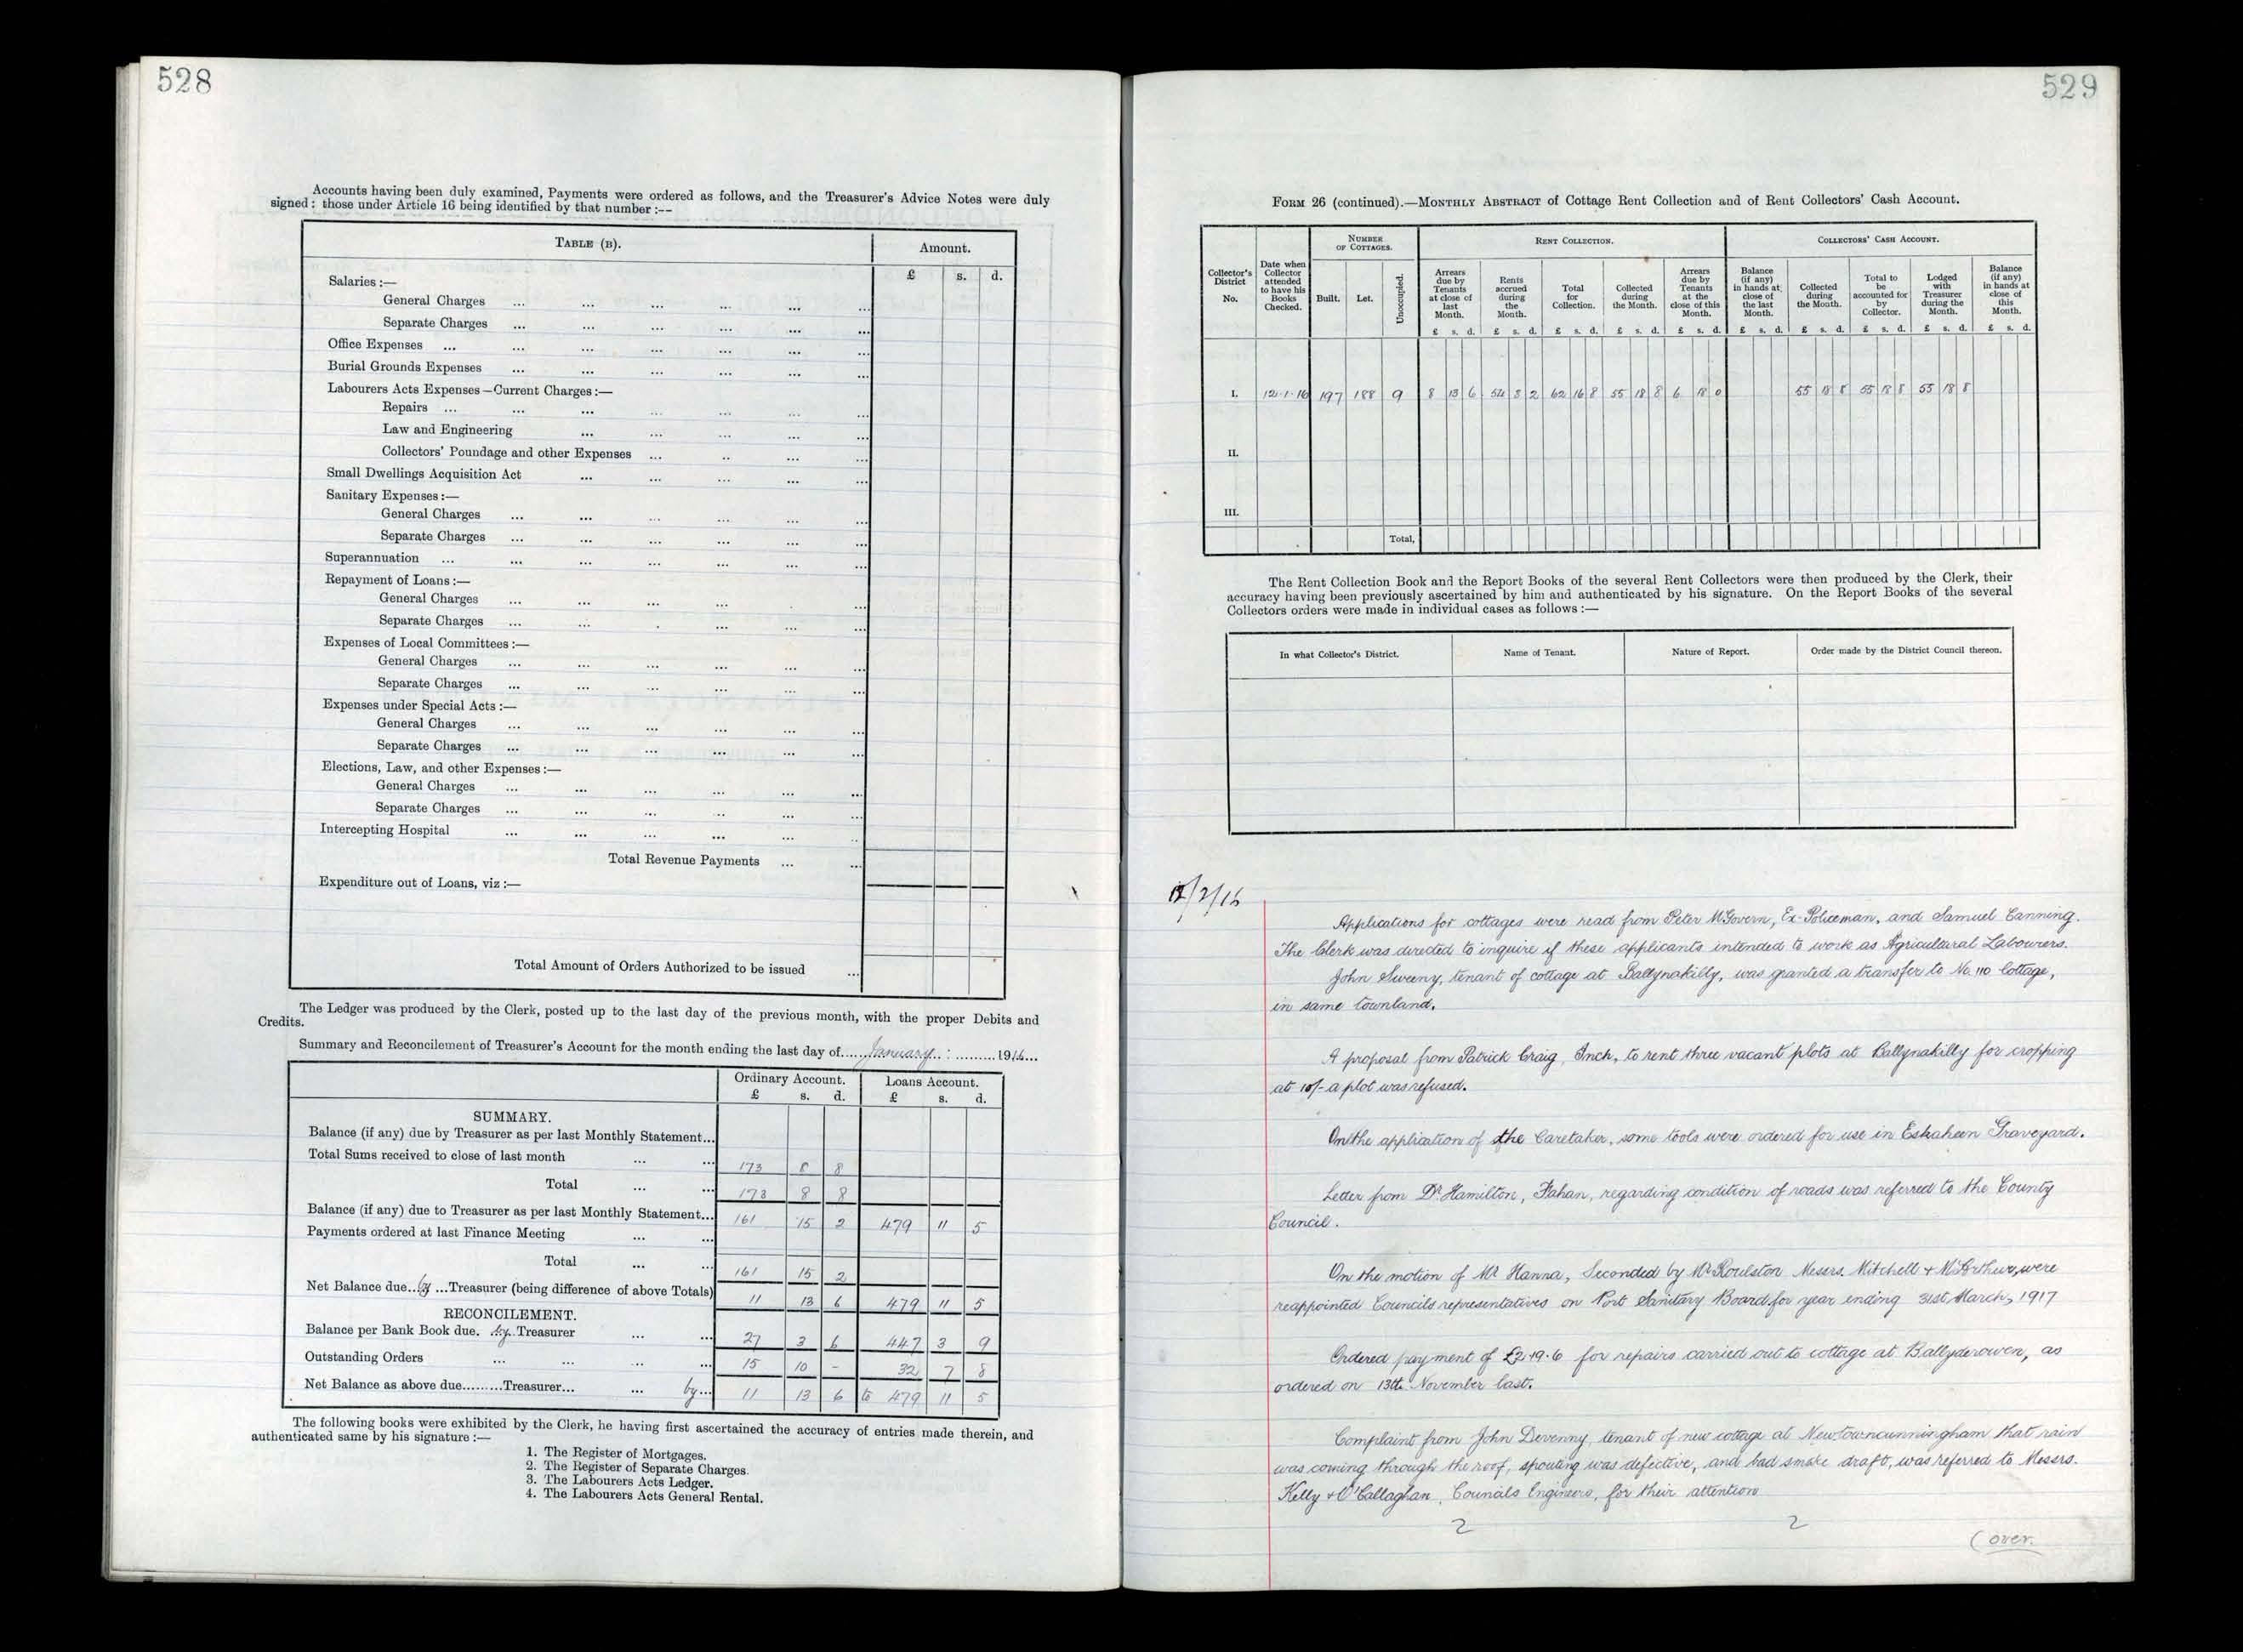 528
Accounts having been duly examined, Payments were ordered as follows, and the Treasurer's Advice Notes were duly
signed: those under Article 16 being identified by that number :--
TABLE (B). Amount.
£ s. d.
Salaries :—
General Charges ... ... ... ... ...
Separate Charges ... ... ... ... ...
Office Expenses ... ... ... ... ...
Burial Grounds Expenses ... ... ... ... ...
Labourers Acts Expenses—Current Charges :—
Repairs ... ... ... ... ... ...
Law and Engineering ... ... ... ...
Collectors' Poundage and other Expenses ... .. ... ...
Small Dwellings Acquisition Act ... ... ... ... ...
Sanitary Expenses :—
General Charges ... ... ... ... ...
Separate Charges ... ... ... ... ...
Superannuation ... ... ... ... ... ...
Repayment of Loans :—
General Charges ... ... ... ...
Separate Charges ... ... ... ... ...
Expenses of Local Committees :—
General Charges ... ... ... ... ...
Separate Charges ... ... ... ... ...
Expenses under Special Acts :—
General Charges ... ... ... ... ...
Separate Charges ... ... ... ... ...
Elections, Law, and other Expenses :—
General Charges ... ... ... ... ...
Separate Charges ... ... ... ... ...
Intercepting Hospital ... ... ... ... ...
Total Revenue Payments ... ...
Expenditure out of Loans, viz :—
Total Amount of Orders Authorized to be issued ...
The Ledger was produced by the Clerk, posted up to the last day of the previous month, with the proper Debits and
Credits.
Summary and Reconcilement of Treasurer's Account for the month ending the last day of......January..........1916...
Ordinary Account. Loans Account.
£ s. d. £ s. d.
SUMMARY.
Balance (if any) due by Treasurer as per last Monthly Statement...
Total Sums received to close of last month ... ... 173 8 8
Total ... ... 173 8 8
Balance (if any) due to Treasurer as per last Monthly Statement... 161 15 2 479 11 5
Payments ordered at last Finance Meeting ... ...
Total ... ... 161 15 2
Net Balance due..by...Treasurer (being difference of above Totals) 11 13 6 479 11 5
RECONCILEMENT.
Balance per Bank Book due. by. Treasurer ... ... 27 3 6 447 3 9
Outstanding Orders ... ... ... ... 15 10 - 32 7 8
Net Balance as above due.........Treasurer... ... by... 11 13 6 to 479 11 5
The following books were exhibited by the Clerk, he having first ascertained the accuracy of entries made therein, and
authenticated same by his signature :—
1. The Register of Mortgages.
2. The Register of Separate Charges.
3. The Labourers Acts Ledger.
4. The Labourers Acts General Rental.
529
FORM 26 (continued).—MONTHLY ABSTRACT of Cottage Rent Collection and of Rent Collectors' Cash Account.
Collector's District No.
Date when Collector attended to have his Books Checked.
NUMBER OF COTTAGES.
Built. Let. Unoccupied.
RENT COLLECTION.
Arrears due by Tenants at close of last Month.
Rents accrued during the Month.
Total for Collection.
Collected during the Month.
Arrears due by Tenants at the close of this Month.
COLLECTORS' CASH ACCOUNT.
Balance (if any) in hands at close of the last Month.
Collected during the Month.
Total to be accounted for by Collector.
Lodged with Treasurer during the Month.
Balance (if any) in hands at close of this Month.
£ s. d. £ s. d. £ s. d. £ s. d. £ s. d. £ s. d. £ s. d. £ s. d. £ s. d. £ s. d.
I. 12.1.16 197 188 9 8 13 6 54 3 2 62 16 8 55 18 8 6 18 0 55 18 8 55 18 8 55 18 8
II.
III.
Total,
The Rent Collection Book and the Report Books of the several Rent Collectors were then produced by the Clerk, their
accuracy having been previously ascertained by him and authenticated by his signature. On the Report Books of the several
Collectors orders were made in individual cases as follows :—
In what Collector's District. Name of Tenant. Nature of Report. Order made by the District Council thereon.
/2/16
Applications for cottages were read from Peter McGovern, Ex-Policeman, and Samuel Canning.
The Clerk was directed to inquire if these applicants intended to work as Agricultural Labourers.
John Sweeny, tenant of cottage at Ballynakilly, was granted a transfer to No. 110 Cottage,
in same townland.
A proposal from Patrick Craig, Inch, to rent three vacant plots at Ballynakilly for cropping
at 10/- a plot was refused.
On the application of the Caretaker, some tools were ordered for use in Eskaheen Graveyard.
Letter from Dr Hamilton, Fahan, regarding condition of roads was referred to the County
Council.
On the motion of Mr Hanna, Seconded by Mr Roulston Messrs. Mitchell & McArthur, were
reappointed Councils representatives on Port Sanitary Board for year ending 31st March, 1917
Ordered payment of £2.19.6 for repairs carried out to cottage at Ballyderowen, as
ordered on 13th November last.
Complaint from John Devenny, tenant of new cottage at Newtowncunningham that rain
was coming through the roof, spouting was defective, and bad smoke draft, was referred to Messrs.
Kelly & O'Callaghan, Councils Engineers, for their attention
2 2
(over.